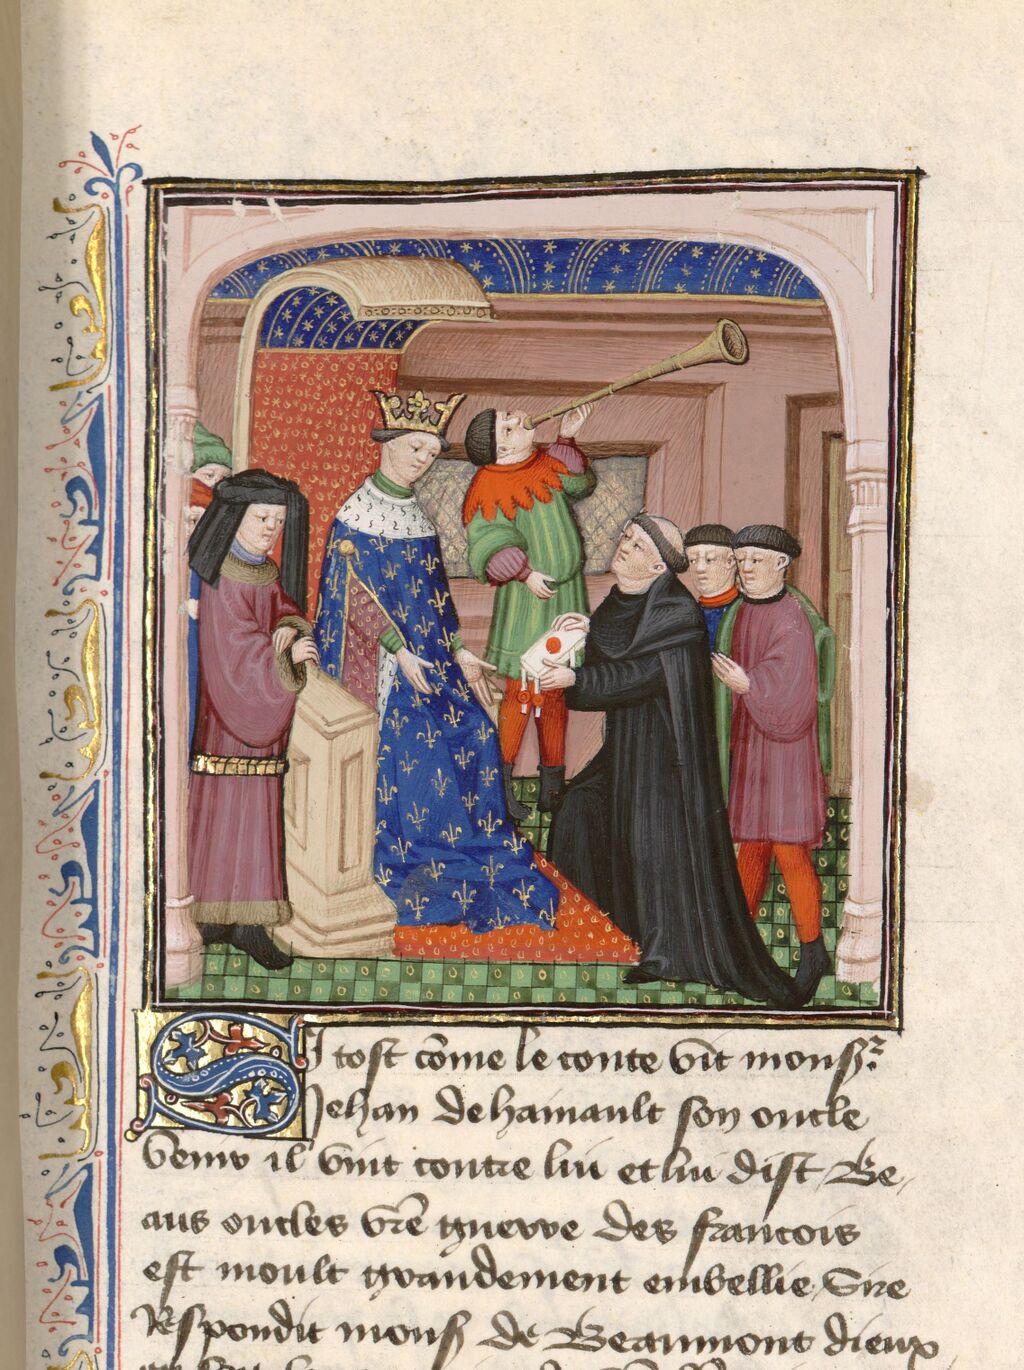 Si tost cõme le conte vit monsr
Jehan de hainault son oncle
venir il vint contre lui et lui dist Be
aus oncles vr̃e guerre des francois
est moult grandement embellie Sire
Respondit mons de Beaumont dieux